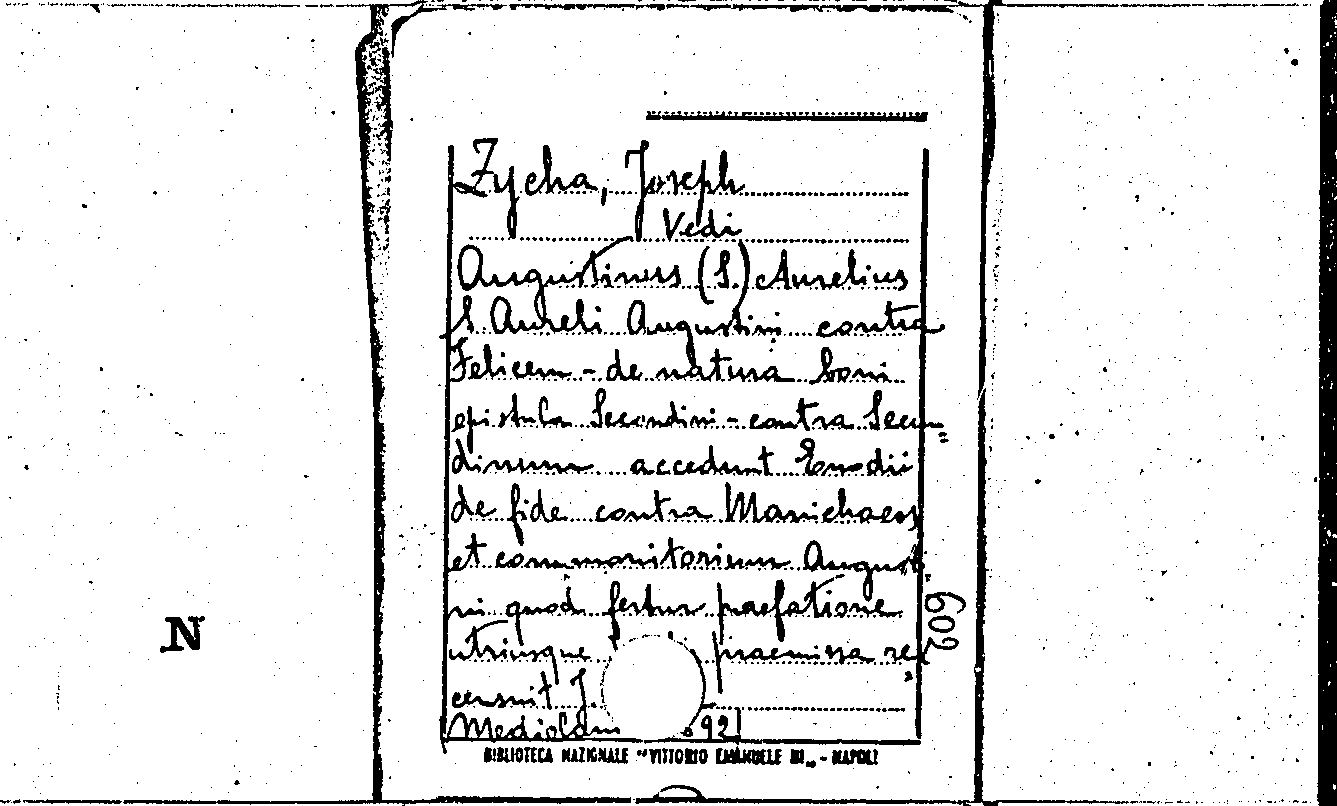 Zycha, Joseph
Vedi
Augustinus (S.) Aurelius
S Aureli Augustini contra
Felicem - de natura boni
epistula Secondini - contra Secun=
dinum accedunt Evodii
de fide contra Manichaeos
et commonitorium Augusti
ni quod fertur praefatione
utriusque praemissa re=
censuit J.
602
N
BIBLIOTECA NAZIONALE "VITTORIO EMANUELE III„ - NAPOLI